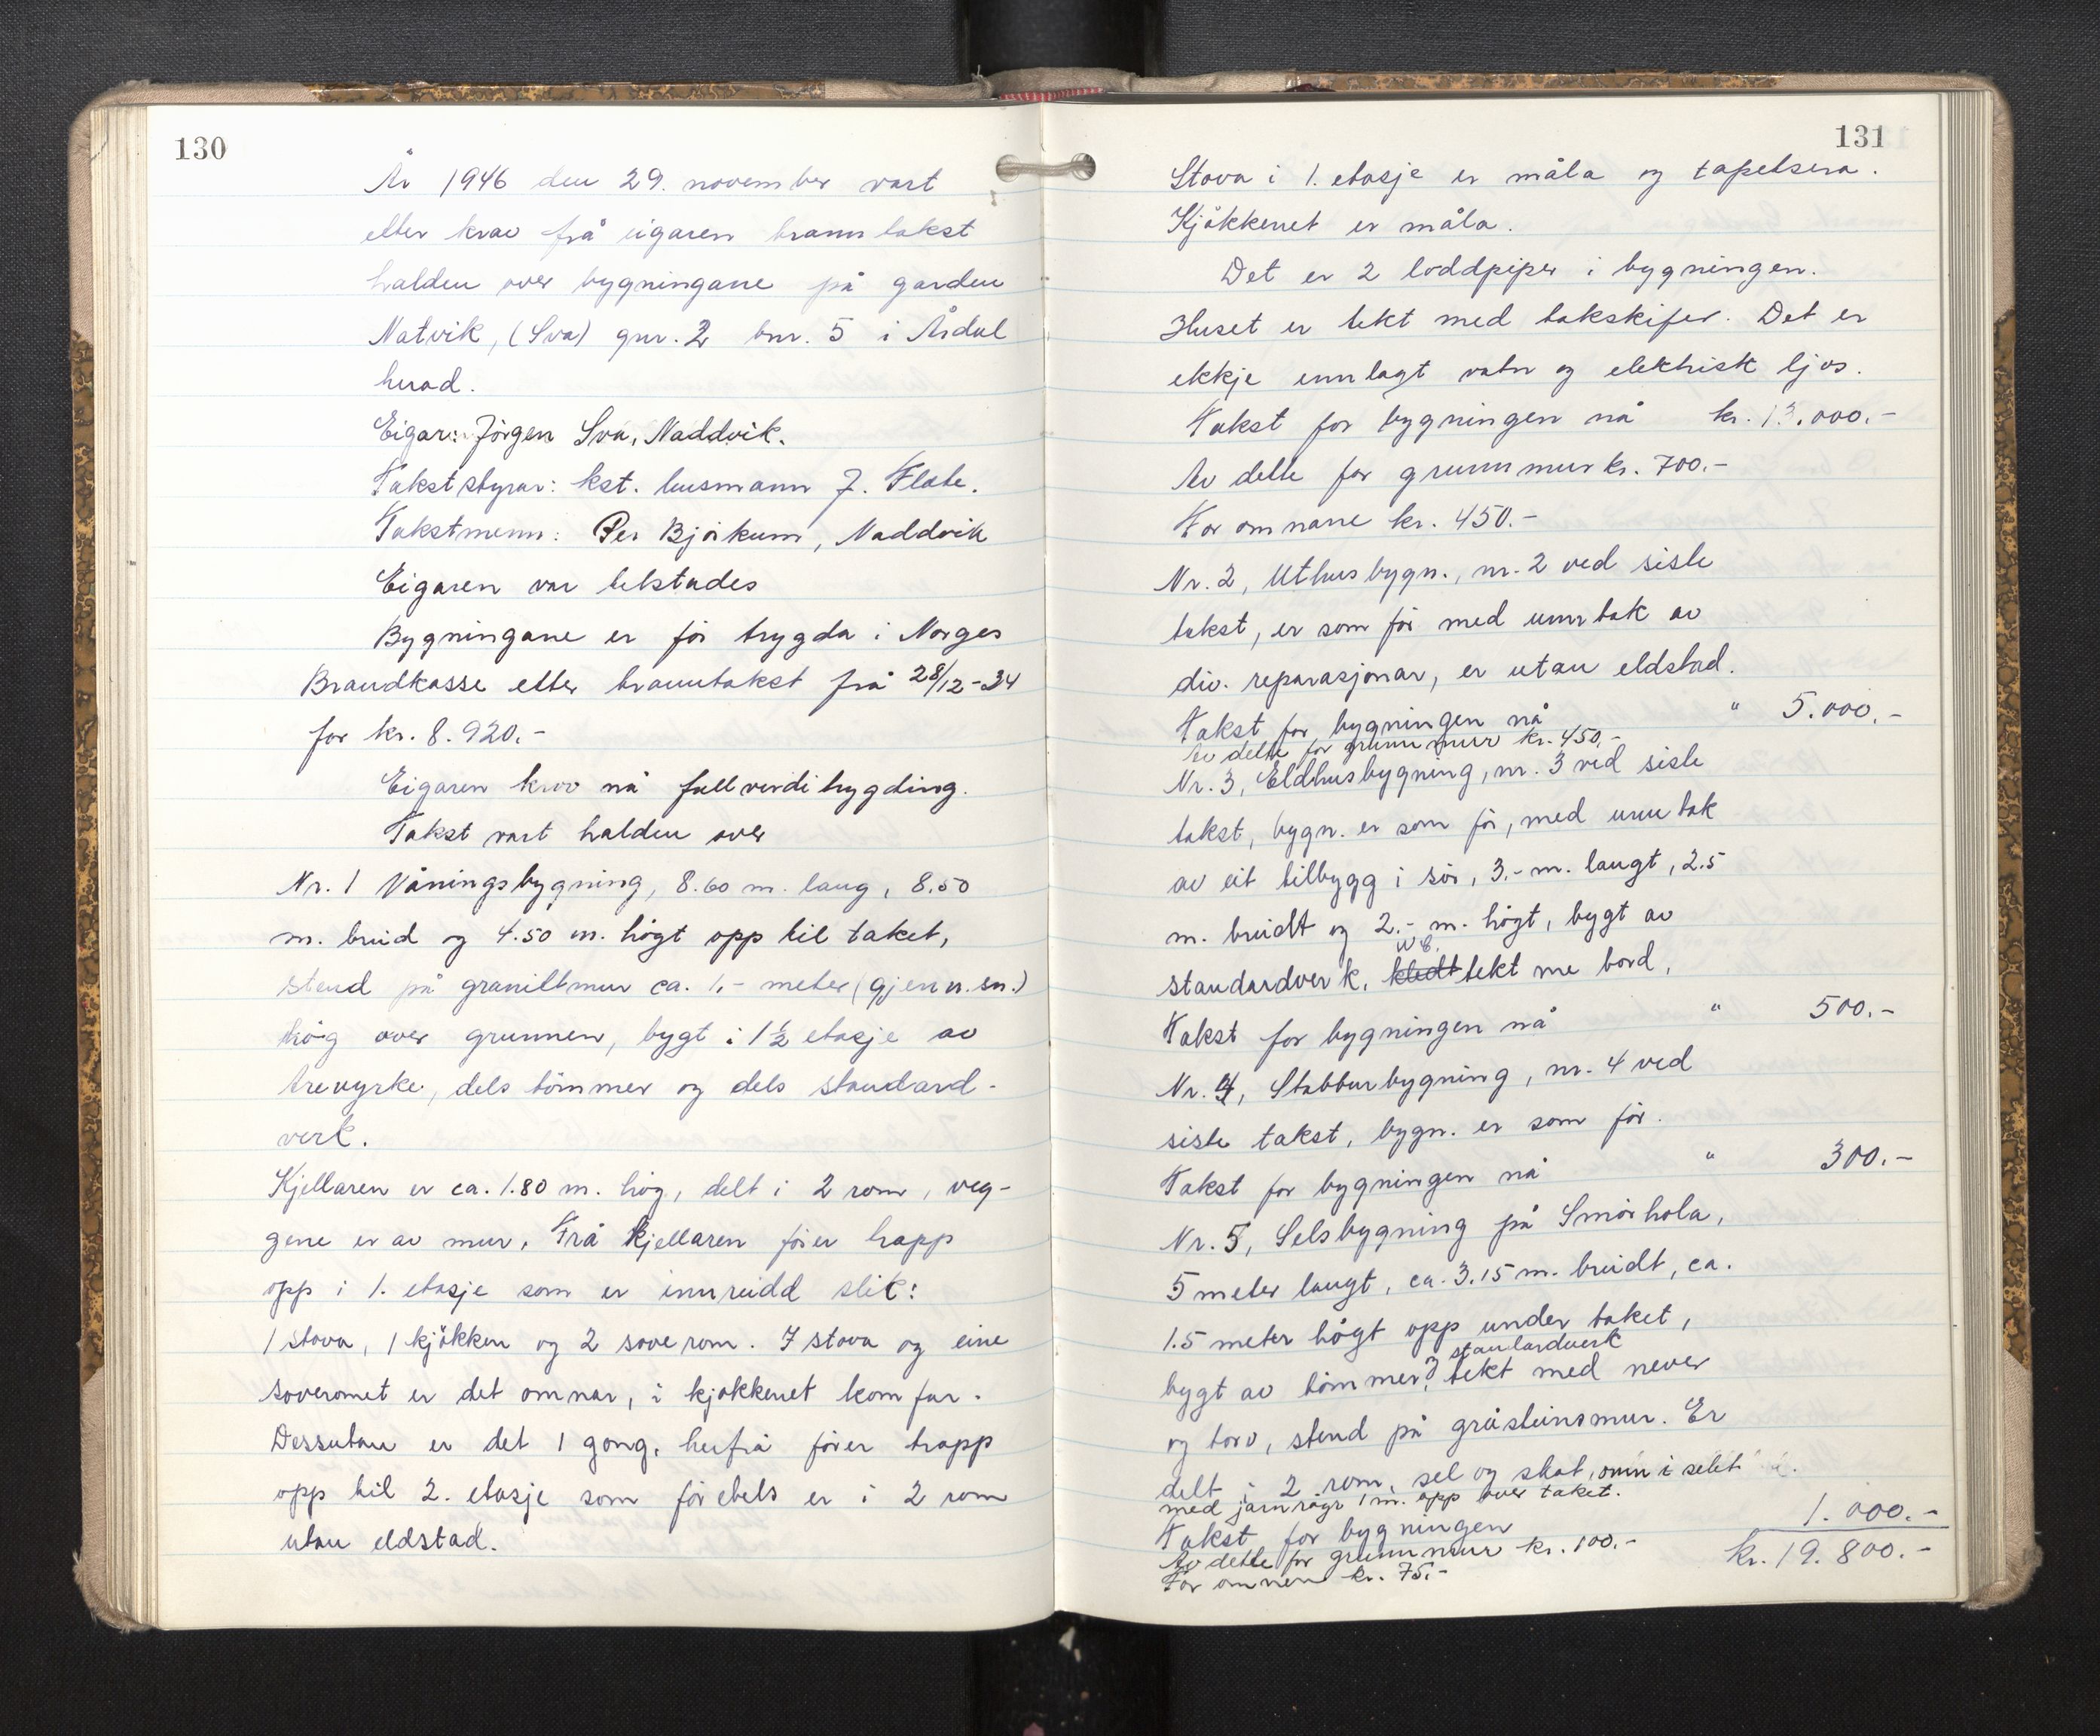 130
År 1946 den 29. november vart
etter krav frå eigaren branntakst
halden over bygningane på garden
Natvik, (Sva) gnr. 2 bnr. 5 i Årdal
herad.
Eigar: Jörgen Sva, Naddvik.
Takststyrar: kst. lensmann J. Flate.
Takstmenn: Per Bjørkum, Naddvik
Eigaren var tilstades
Bygningane er för trygda i Norges
Brandkasse etter branntakst frå 28/12-34
for kr. 8.920.-
Eigaren krev nå fullverditrygding.
Takst vart halden over
Nr. 1 Våningsbygning, 8.60 m. lang, 8.50
m. breid og 4.50 m. högt opp til taket,
stend på granittmur ca. 1.- meter (gjenn.sn.)
hög over grunnen, bygt i 1½ etasje av
trevyrke, dels tömmer og dels standard-
verk.
Kjellaren er ca. 1.80 m. hög, delt i 2 rom, veg-
gene er av mur. Frå kjellaren förer trapp
opp i 1. etasje som er innreidd slik:
1 stova, 1 kjökken og 2 soverom. I stova og eine
soveromet er det omnar, i kjökkenet komfur.
Dessutan er det 1 gong, herfrå förer trapp
opp til 2. etasje som förebels er i 2 rom
utan eldstad.
131
Stova i 1. etasje er måla og tapetsera.
Kjökkenet er måla.
Det er 2 loddpiper i bygningen.
Huset er tekt med takskifer. Det er
ikkje innlagt vatn og elektrisk ljos.
Takst for bygningen nå kr. 13.000.-
Av dette for grunnmur kr. 700.-
For omnane kr. 450.-
Nr. 2, Uthusbygn., nr. 2 ved siste
takst, er som för med unntak av
div. reparasjonar, er utan eldstad.
Takst for bygningen nå " 5.000.-
Av dette for grunnmur kr. 450.-
Nr. 3, Eldhusbygning, nr. 3 ved siste
takst, bygn. er som för, med unntak
av eit tilbygg i sör, 3.- m. langt, 2.5
m. breidt og 2.- m. högt, bygt av
standardverk, kledt tekt me bord,
Takst for bygningen nå " 500.-
Nr. 4, Stabburbygning, nr. 4 ved
siste takst, bygn. er som för.
Takst for bygningen nå " 300.-
Nr. 5, Selsbygning på Smörhola,
5 meter langt, ca. 3.15 m. breidt, ca.
1.5 meter högt opp under taket,
standardverk
bygt av tömmer og, tekt med never
og torv, stend på gråsteinsmur. Er
delt i 2 rom, sel og skot, omn i selet
med jarnrøyr 1 m. opp over taket.
Takst for bygningen 1.000.-
Av dette for grunnmur kr. 100.- kr. 19.800.-
For omnen kr. 75.-